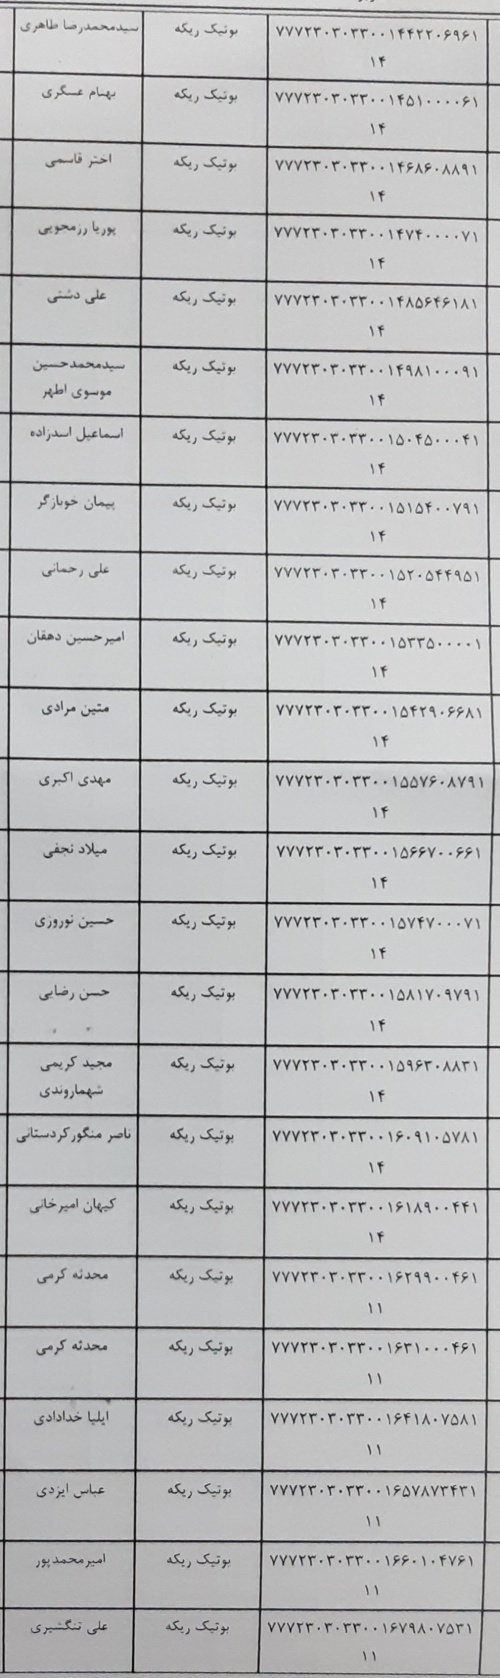 ۷۷۷۲۳۰۳۰۳۳۰۰۱۴۴۲۲۰۶۹۶۱ بوتیک ریکه سیدمحمدرضا طاهری
۱۴
۷۷۷۲۳۰۳۰۳۳۰۰۱۴۵۱۰۰۰۰۶۱ بوتیک ریکه بهنام عسگری
۱۴
۷۷۷۲۳۰۳۰۳۳۰۰۱۴۶۸۶۰۸۸۹۱ بوتیک ریکه اختر قاسمی
۱۴
۷۷۷۲۳۰۳۰۳۳۰۰۱۴۷۴۰۰۰۰۷۱ بوتیک ریکه پوریا رزمجویی
۱۴
۷۷۷۲۳۰۳۰۳۳۰۰۱۴۸۵۶۴۶۱۸۱ بوتیک ریکه علی دشتی
۱۴
۷۷۷۲۳۰۳۰۳۳۰۰۱۴۹۸۱۰۰۰۹۱ بوتیک ریکه سیدمحمدحسین
۱۴ موسوی اطهر
۷۷۷۲۳۰۳۰۳۳۰۰۱۵۰۴۵۰۰۰۴۱ بوتیک ریکه اسماعیل اسدزاده
۱۴
۷۷۷۲۳۰۳۰۳۳۰۰۱۵۱۵۴۰۰۷۹۱ بوتیک ریکه پیمان خوبازگر
۱۴
۷۷۷۲۳۰۳۰۳۳۰۰۱۵۲۰۵۴۴۹۵۱ بوتیک ریکه علی رحمانی
۱۴
۷۷۷۲۳۰۳۰۳۳۰۰۱۵۳۳۵۰۰۰۰۱ بوتیک ریکه امیرحسین دهقان
۱۴
۷۷۷۲۳۰۳۰۳۳۰۰۱۵۴۲۹۰۶۶۸۱ بوتیک ریکه متین مرادی
۱۴
۷۷۷۲۳۰۳۰۳۳۰۰۱۵۵۷۶۰۸۷۹۱ بوتیک ریکه مهدی اکبری
۱۴
۷۷۷۲۳۰۳۰۳۳۰۰۱۵۶۶۷۰۰۶۶۱ بوتیک ریکه میلاد نجفی
۱۴
۷۷۷۲۳۰۳۰۳۳۰۰۱۵۷۴۷۰۰۰۷۱ بوتیک ریکه حسین نوروزی
۱۴
۷۷۷۲۳۰۳۰۳۳۰۰۱۵۸۱۷۰۹۷۹۱ بوتیک ریکه حسن رضایی
۱۴
۷۷۷۲۳۰۳۰۳۳۰۰۱۵۹۶۳۰۸۸۳۱ بوتیک ریکه مجید کریمی
۱۴ شهماروندی
۷۷۷۲۳۰۳۰۳۳۰۰۱۶۰۹۱۰۵۷۸۱ بوتیک ریکه ناصر منگورکردستانی
۱۴
۷۷۷۲۳۰۳۰۳۳۰۰۱۶۱۸۹۰۰۴۴۱ بوتیک ریکه کیهان امیرخانی
۱۴
۷۷۷۲۳۰۳۰۳۳۰۰۱۶۲۹۹۰۰۴۶۱ بوتیک ریکه محدثه کرمی
۱۱
۷۷۷۲۳۰۳۰۳۳۰۰۱۶۳۱۰۰۰۴۶۱ بوتیک ریکه محدثه کرمی
۱۱
۷۷۷۲۳۰۳۰۳۳۰۰۱۶۴۱۸۰۷۵۸۱ بوتیک ریکه ایلیا خدادادی
۱۱
۷۷۷۲۳۰۳۰۳۳۰۰۱۶۵۷۸۷۳۴۳۱ بوتیک ریکه عباس ایزدی
۱۱
۷۷۷۲۳۰۳۰۳۳۰۰۱۶۶۰۱۰۴۷۶۱ بوتیک ریکه امیرمحمدپور
۱۱
۷۷۷۲۳۰۳۰۳۳۰۰۱۶۷۹۸۰۷۵۳۱ بوتیک ریکه علی تنگشیری
۱۱